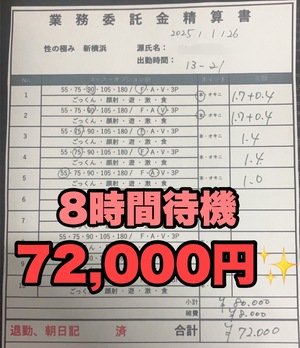 業務委託金精算書
2025 1 / 26
性の極み 新横浜 源氏名:
出勤時間: 13-21
No.
1 55・75・90・105・180/ F・A・V・3P 本・オキニ 1.7+0.4
ごっくん・顔射・遊・激・食
2 55・75・90・105・180/ F・A・V・3P 本・オキニ 1.7+0.4
ごっくん・顔射・遊・激・食
3 55・75・90・105・180/ F・A・V・3P 本・オキニ 1.4
ごっくん・顔射・遊・激・食
4 55・75・90・105・180/ F・A・V・3P 本・オキニ 1.4
ごっくん・顔射・遊・激・食
5 55・75・90・105・180/ F・A・V・3P 本・オキニ 1.0
ごっくん・顔射・遊・激・食
8時間待機
72,000円
55・75・90・105・180/ F・A・V・3P 本・オキニ
ごっくん・顔射・遊・激・食
小計 ¥80.000
雑費 ¥8.000
退勤、朝日記 済 合計 ¥72.000